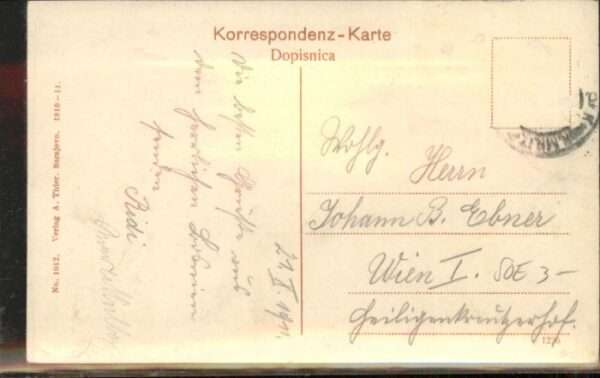 Korrespondenz-Karte
Dopisnica
No. 1012. Verlag A. Thier, Sarajevo. 1910-11.
Die besten Grüße aus
dem herrlichen Bosnien
Ridi
21. 
Wohlg. Herrn
Johann B. Ebner
Wien I. 3-
Heiligenkreutzerhof.